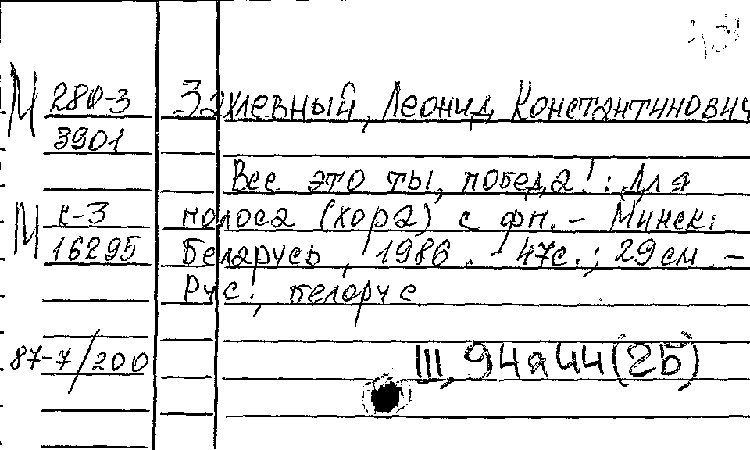 М 280-3 Захлевный, Леонид Константинович
3901
Все это ты, победа! : Для
М К-3 голоса (хора) с фп. - Минск:
16295 Беларусь, 1986. - 47с.; 29см -
Рус., белорус
87-7/200
III, 94я44(2Б)